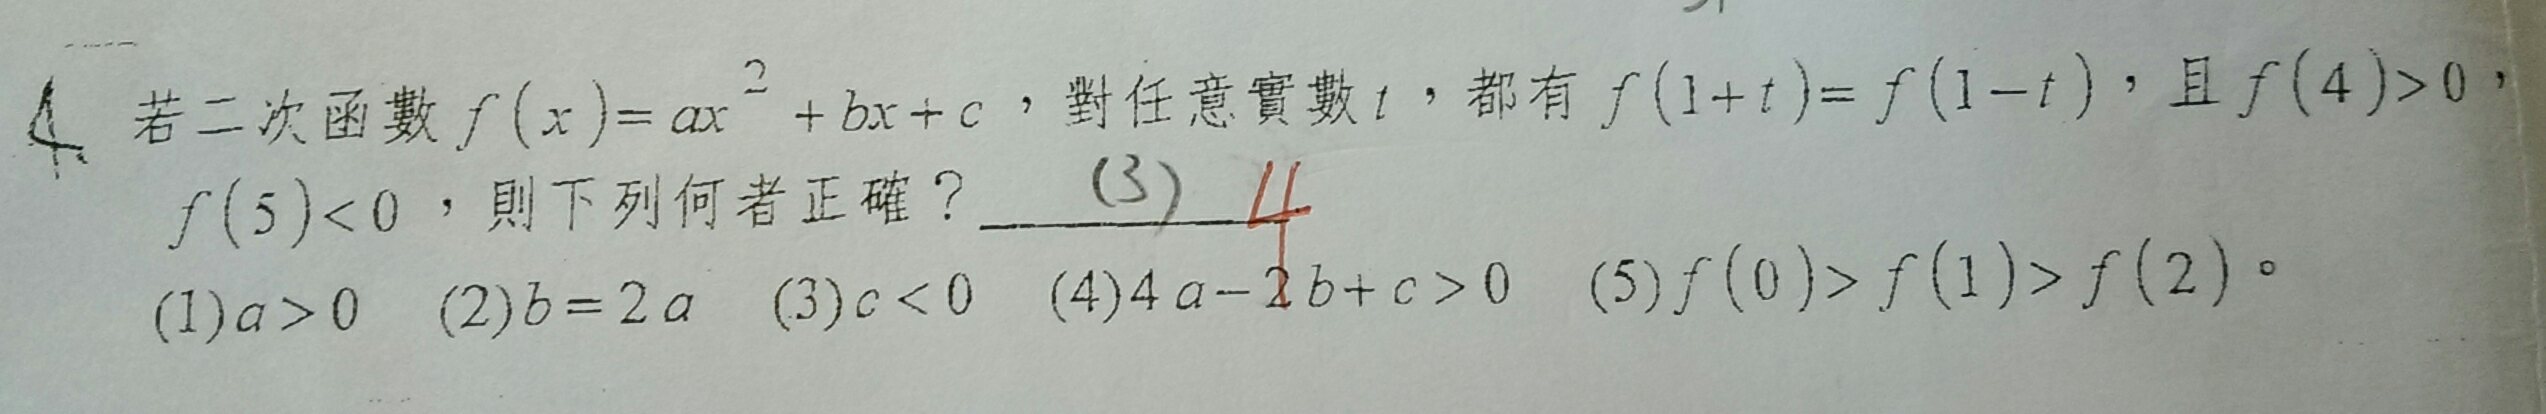 4. 若二次函數 f(x)=ax²+bx+c，對任意實數t，都有 f(1+t)=f(1-t)，且 f(4)>0，
f(5)<0，則下列何者正確？ (3) 4
(1)a>0 (2)b=2a (3)c<0 (4)4a-2b+c>0 (5)f(0)>f(1)>f(2)。